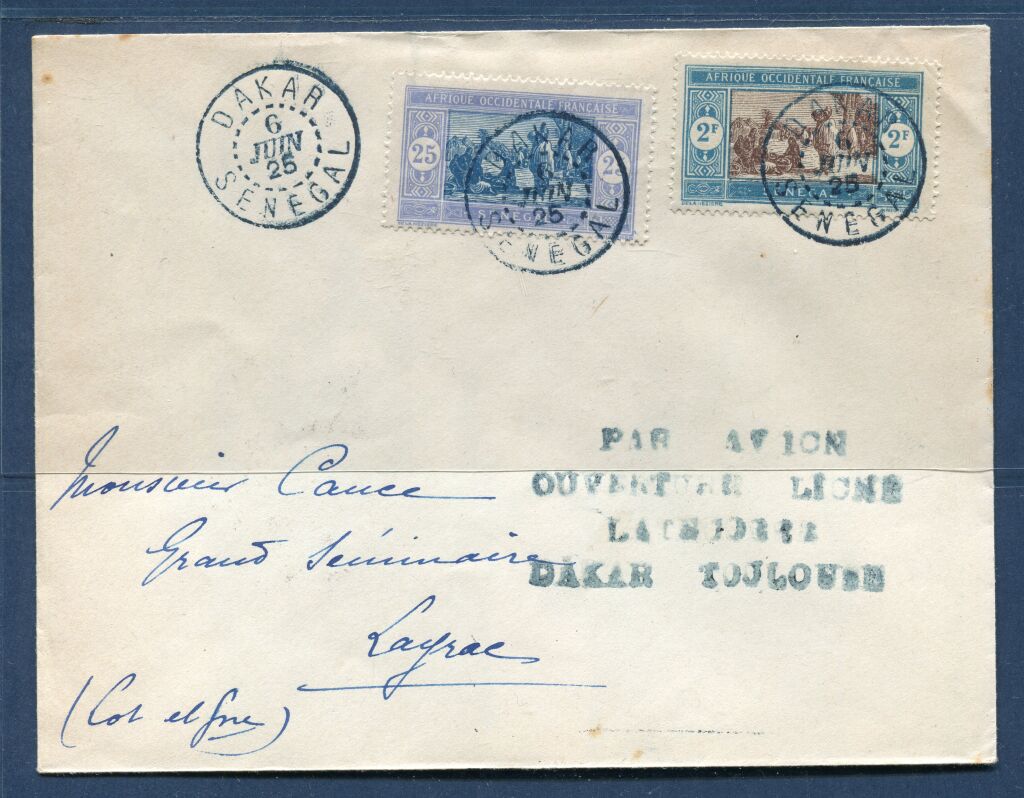 DAKAR
6
JUIN
25
SENEGAL
AFRIQUE OCCIDENTALE FRANÇAISE
25 25
SENEGAL
DAKAR
6
JUIN
25
SENEGAL
AFRIQUE OCCIDENTALE FRANÇAISE
2F 2F
SENEGAL
DAKAR
6
JUIN
25
SENEGAL
PAR AVION
OUVERTURE LIGNE
DAKAR TOULOUSE
Monsieur Cance
Grand Séminaire
Layrac
(Lot et Gne)